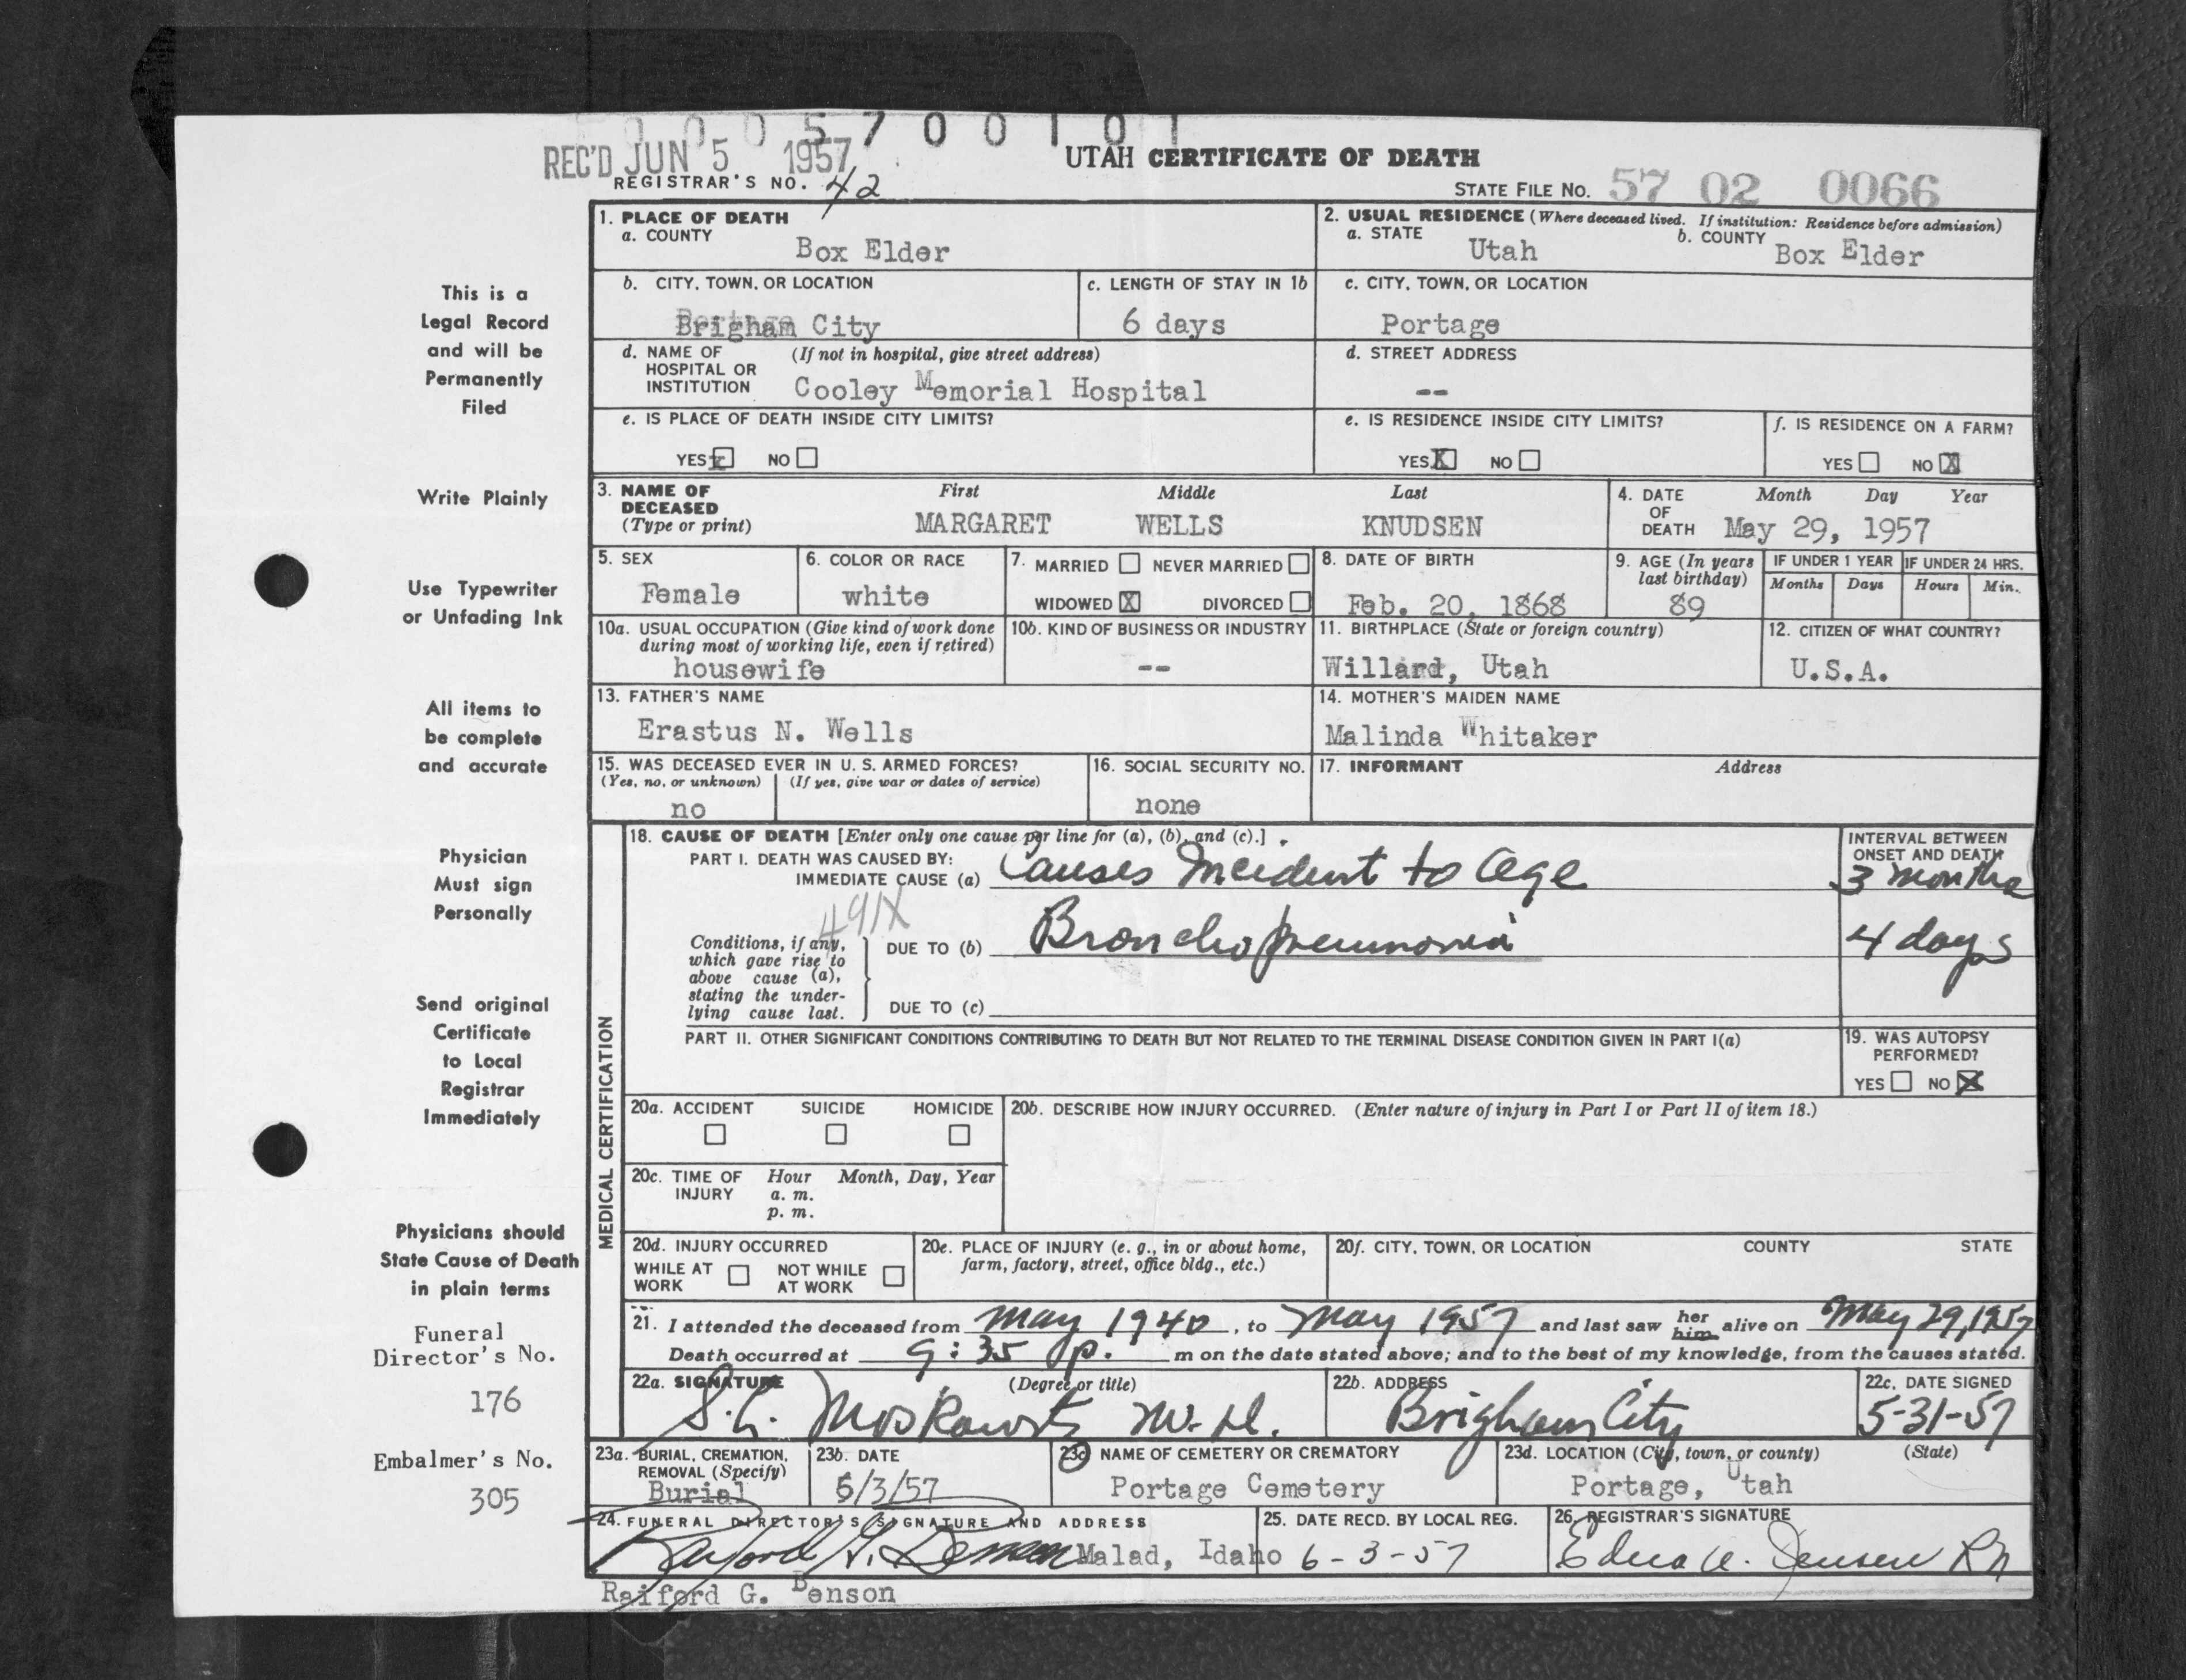 0 0 0 5 7 0 0 1 0 1
REC'D JUN 5 1957
UTAH CERTIFICATE OF DEATH
REGISTRAR'S NO. 42
STATE FILE NO. 57 02 0066
This is a
Legal Record
and will be
Permanently
Filed
Write Plainly
Use Typewriter
or Unfading Ink
All items to
be complete
and accurate
Physician
Must sign
Personally
Send original
Certificate
to Local
Registrar
Immediately
Physicians should
State Cause of Death
in plain terms
Funeral
Director's No.
176
Embalmer's No.
305
1. PLACE OF DEATH
a. COUNTY
Box Elder
2. USUAL RESIDENCE (Where deceased lived. If institution: Residence before admission)
a. STATE
Utah
b. COUNTY
Box Elder
b. CITY, TOWN, OR LOCATION
Brigham City
c. LENGTH OF STAY IN 1b
6 days
c. CITY, TOWN, OR LOCATION
Portage
d. NAME OF (If not in hospital, give street address)
HOSPITAL OR
INSTITUTION Cooley Memorial Hospital
d. STREET ADDRESS
--
e. IS PLACE OF DEATH INSIDE CITY LIMITS?
YES X NO
e. IS RESIDENCE INSIDE CITY LIMITS?
YES X NO
f. IS RESIDENCE ON A FARM?
YES NO X
3. NAME OF DECEASED (Type or print)
First Middle Last
MARGARET WELLS KNUDSEN
4. DATE OF DEATH
Month Day Year
May 29, 1957
5. SEX
Female
6. COLOR OR RACE
white
7. MARRIED NEVER MARRIED
WIDOWED X DIVORCED
8. DATE OF BIRTH
Feb. 20, 1868
9. AGE (In years
last birthday)
89
IF UNDER 1 YEAR
Months Days
IF UNDER 24 HRS.
Hours Min.
10a. USUAL OCCUPATION (Give kind of work done
during most of working life, even if retired)
housewife
10b. KIND OF BUSINESS OR INDUSTRY
--
11. BIRTHPLACE (State or foreign country)
Willard, Utah
12. CITIZEN OF WHAT COUNTRY?
U.S.A.
13. FATHER'S NAME
Erastus N. Wells
14. MOTHER'S MAIDEN NAME
Malinda Whitaker
15. WAS DECEASED EVER IN U. S. ARMED FORCES?
(Yes, no, or unknown) (If yes, give war or dates of service)
no
16. SOCIAL SECURITY NO.
none
17. INFORMANT Address
MEDICAL CERTIFICATION
18. CAUSE OF DEATH [Enter only one cause per line for (a), (b), and (c).]
PART I. DEATH WAS CAUSED BY:
IMMEDIATE CAUSE (a) Causes Incident to Age
INTERVAL BETWEEN
ONSET AND DEATH
3 months
491X
Conditions, if any,
which gave rise to
above cause (a),
stating the under-
lying cause last.
DUE TO (b) Bronchopneumonia
4 days
DUE TO (c)
PART II. OTHER SIGNIFICANT CONDITIONS CONTRIBUTING TO DEATH BUT NOT RELATED TO THE TERMINAL DISEASE CONDITION GIVEN IN PART I(a)
19. WAS AUTOPSY
PERFORMED?
YES NO X
20a. ACCIDENT SUICIDE HOMICIDE
20b. DESCRIBE HOW INJURY OCCURRED. (Enter nature of injury in Part I or Part II of item 18.)
20c. TIME OF INJURY
Hour Month, Day, Year
a. m.
p. m.
20d. INJURY OCCURRED
WHILE AT WORK NOT WHILE AT WORK
20e. PLACE OF INJURY (e. g., in or about home,
farm, factory, street, office bldg., etc.)
20f. CITY, TOWN, OR LOCATION COUNTY STATE
21. I attended the deceased from May 1940, to May 1957 and last saw her him alive on May 29, 1957
Death occurred at 9:35 p. m on the date stated above; and to the best of my knowledge, from the causes stated.
22a. SIGNATURE (Degree or title)
S. C. Moskowitz M.D.
22b. ADDRESS
Brigham City
22c. DATE SIGNED
5-31-57
23a. BURIAL, CREMATION,
REMOVAL (Specify)
Burial
23b. DATE
6/3/57
23c NAME OF CEMETERY OR CREMATORY
Portage Cemetery
23d. LOCATION (City, town, or county) (State)
Portage, Utah
24. FUNERAL DIRECTOR'S SIGNATURE AND ADDRESS
Raiford G. Benson Malad, Idaho
25. DATE RECD. BY LOCAL REG.
6-3-57
26. REGISTRAR'S SIGNATURE
Edna A. Jensen RN
Raiford G. Benson